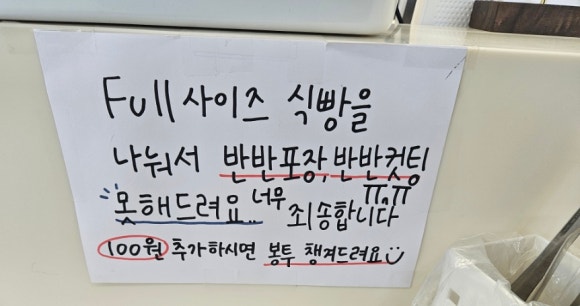 Full 사이즈 식빵을
나눠서 반반포장, 반반컷팅
못해드려요.. 너무 죄송합니다 ㅠ.ㅠ
100원 추가하시면 봉투 챙겨드려요